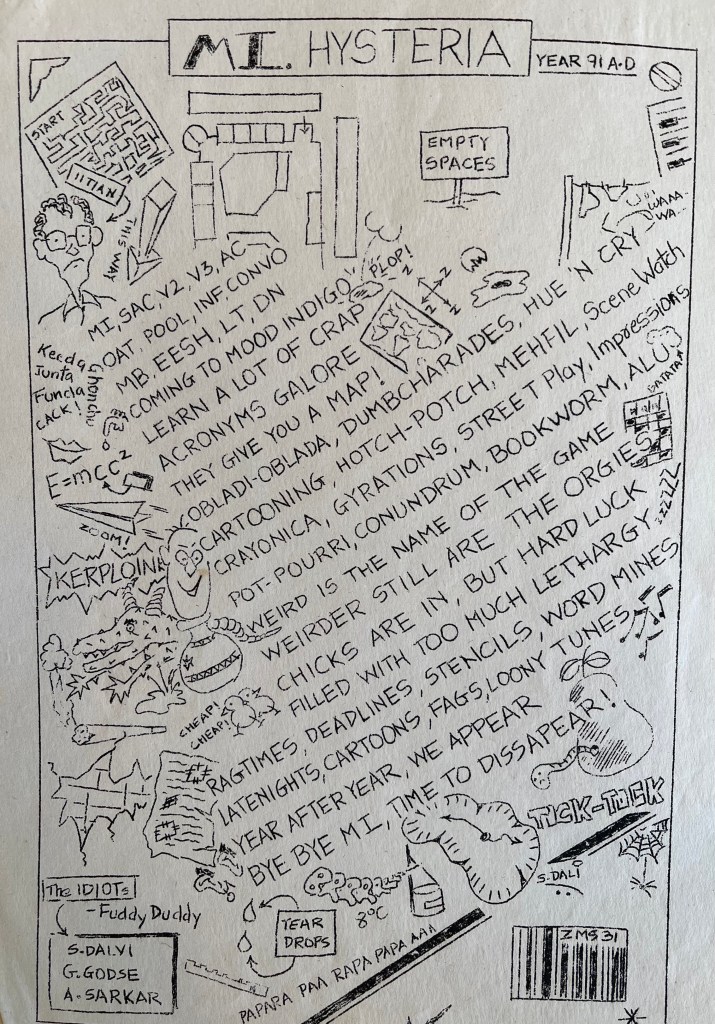 MI. HYSTERIA
YEAR 91 A.D
START
THIS WAY
EMPTY
SPACES
WAAA--
WA--
PLOP!
N
N
N
N
MI, SAC, V2, V3, AC
OAT, POOL, INF, CONVO
MB, EESH, LT, DN
COMING TO MOOD INDIGO
LEARN A LOT OF CRAP
ACRONYMS GALORE
THEY GIVE YOU A MAP!
OBLADI-OBLADA, DUMBCHARADES, HUE 'N CRY
CARTOONING, HOTCH-POTCH, MEHFIL, Scene Watch
CRAYONICA, GYRATIONS, STREET Play, Impressions
POT-POURRI, CONUNDRUM, BOOKWORM, ALU
BATATA
WEIRD IS THE NAME OF THE GAME
WEIRDER STILL ARE THE ORGIES
CHICKS ARE IN, BUT HARD LUCK
FILLED WITH TOO MUCH LETHARGY
ZZZZZ
RAGTIMES, DEADLINES, STENCILS, WORD MINES
LATENIGHTS, CARTOONS, FAGS, LOONY TUNES
YEAR AFTER YEAR, WE APPEAR
BYE BYE M I, TIME TO DISSAPEAR!
Keeda
Ghonchu
Junta
Funda
CACK!
E=mcc²
ZOOM!
KERPLOINK
CHEAP!
CHEAP!
TICK-TOCK
S.DALI
The IDIOTs
-Fuddy Duddy
S.DALVI
G.GODSE
A.SARKAR
TEAR
DROPS
8°C
PAPARA PAA RAPA PAPA AAA
ZMS 31